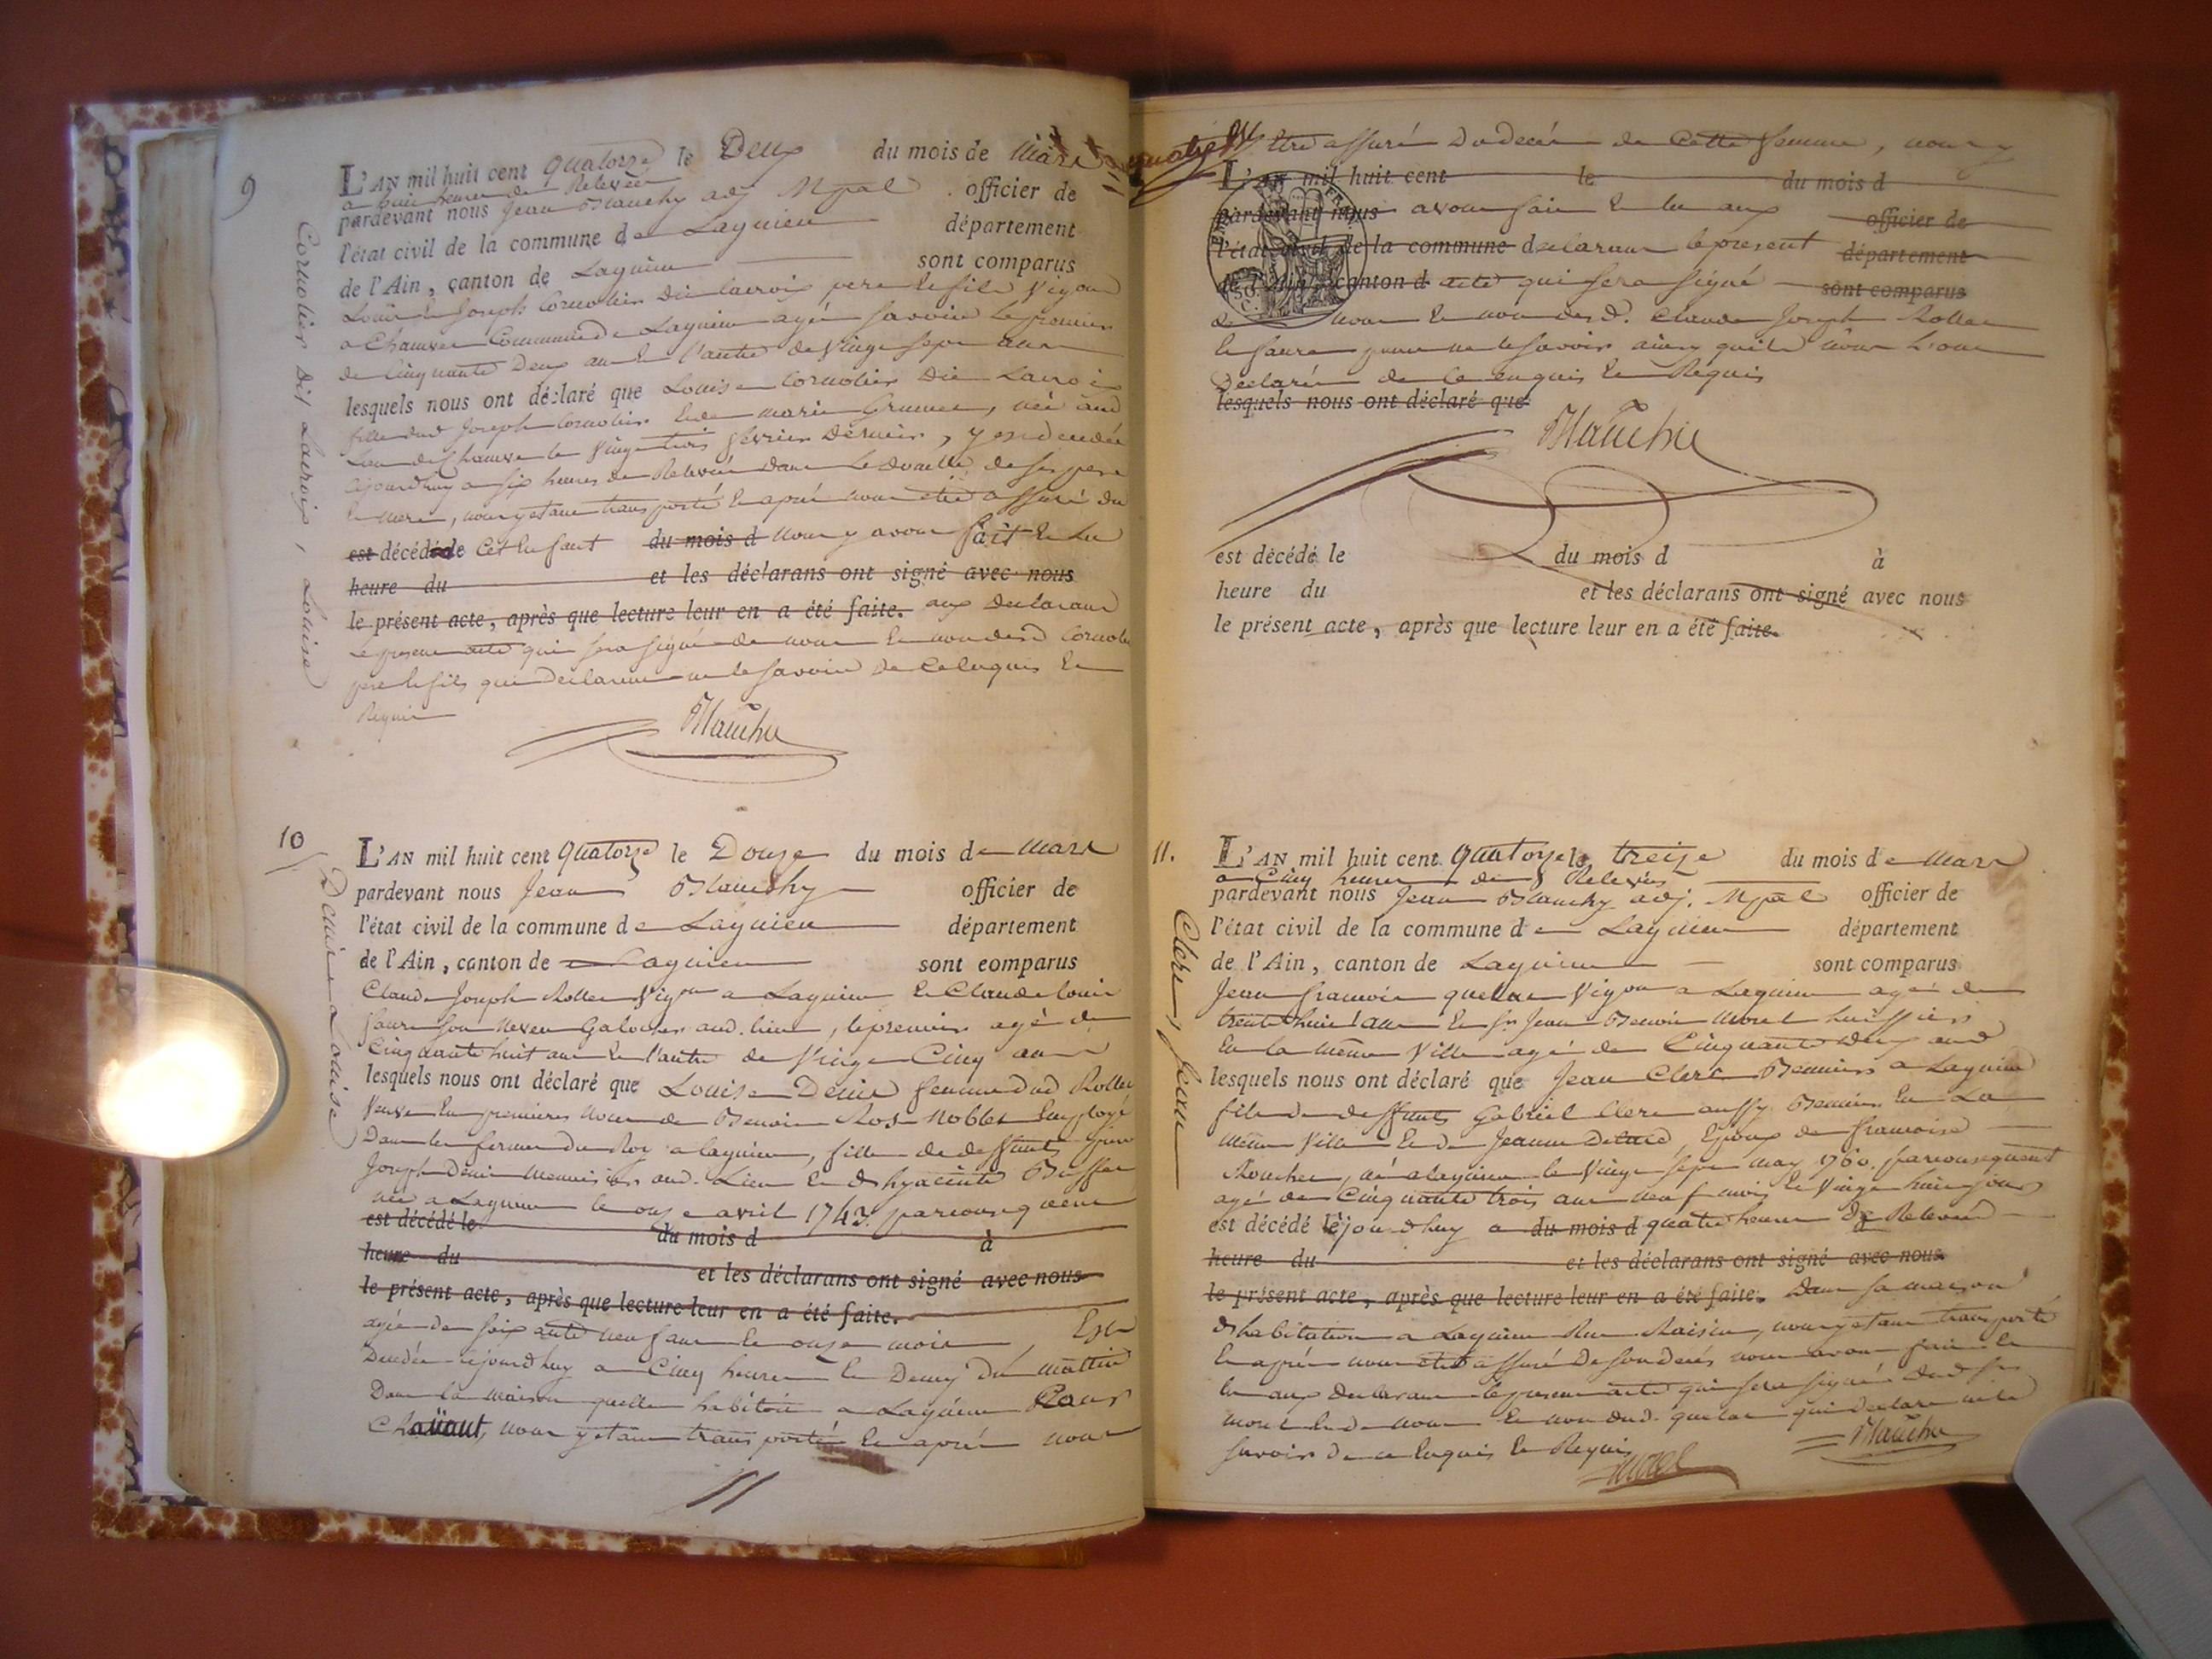 9
Cornolier dit Lacroix, Louise
L'AN mil huit cent quatorze le Deux du mois de Mars
a huit heures de Relevée
pardevant nous Jean Blanchy adj Mpal officier de
l'état civil de la commune de Lagnieu département
de l'Ain, canton de Lagnieu sont comparus
Louis & Joseph Cornolier dit Lacroix pere & fils Vigons
a Chamves Commune de Lagnieu agés savoir le premier
de Cinquante Deux ans & l'autre de Vingt sept ans
lesquels nous ont déclaré que Louise Cornolier dit Lacroix
fille dud Joseph Cornolier & de marie , née aud
lieu de le Vingt trois fevrier dernier, y est decedée
cejourdhuy a six heures de Relevée dans le domicille de ses pere
& mere, nous y etant transporté & après nous etre assuré du
est décédé le Cet Enfant du mois d Nous y avons fait & lu
heure du et les déclarans ont signé avec nous
le présent acte, après que lecture leur en a été faite. aux declarans
le present acte qui sera signé de nous & non desd Cornolier
pere & fils qui declarent ne le savoir de ce Enquis &
Requis
Blanchy
10
Denis Louise
L'AN mil huit cent quatorze le Douze du mois de Mars
pardevant nous Jean Blanchy officier de
l'état civil de la commune de Lagnieu département
de l'Ain, canton de Lagnieu sont comparus
Claude Joseph Rollet Vigon a Lagnieu & Claude Louis
faure son Neveu aud. lieu, le premier agé de
Cinquante huit ans & l'autre de Vingt Cinq ans
lesquels nous ont déclaré que Louise Denis femme dud Rollet
Veuve En premieres Noces de Benoit Ros Noblet Employé
Dans les fermes du Roy a lagnieu, fille de deffunts
Joseph Denis Menuisier aud. Lieu & d hyacinte
née a Lagnieu le onze avril 1743. parconsequent
est décédé le du mois d à
heure du et les déclarans ont signé avec nous
le présent acte, après que lecture leur en a été faite.
agée de soixante neuf ans & onze mois Est
Decedée cejourdhuy a Cinq heures & Demy du mattin
Dans la maison quelle habitoit a Lagnieu
nous y etant transporté & après nous
etre assuré du decès de Cette femme, nous y
L'AN mil huit cent le du mois d
pardevant nous avons fait & lu aux officier de
l'état civil de la commune declarans le present département
de l'Ain, canton d acte qui sera signé sont comparus
de nous & non desd. Claude Joseph Rollet
& faure pour ne le savoir ainsy quils nous l'ont
Declaré de ce enquis & Requis
lesquels nous ont déclaré que
Blanchy
est décédé le du mois d à
heure du et les déclarans ont signé avec nous
le présent acte, après que lecture leur en a été faite.
11.
Clerc, Jean
L'AN mil huit cent quatorze le treize du mois de Mars
a Cinq heures de Relevée
pardevant nous Jean Blanchy adj. Mpal officier de
l'état civil de la commune de Lagnieu département
de l'Ain, canton de Lagnieu sont comparus
Jean francois Vigon a Lagnieu agé de
trente huit ans & sr Jean Benoit Morel huissier
En la même Ville agé de Cinquante deux ans
lesquels nous ont déclaré que Jean Clerc a Lagnieu
fils de deffunts Gabriel Clerc aussy En La
même Ville & de Jeanne , Epoux de francoise
, né a lagnieu le Vingt sept May 1760. parconsequent
agé de Cinquante trois ans neuf mois & Vingt huit jours
est décédé cejourdhuy a du mois d quatre heures de Relevée à
heure du et les déclarans ont signé avec nous
le présent acte, après que lecture leur en a été faite. Dans sa maison
d habitation a Lagnieu Rue Raisin, nous y etant transporté
& après nous etre assuré de son decés nous avons fait &
lu aux declarans le present acte qui sera signé dud sr
morel & de nous & non dud. qui declare ne le
savoir de ce Enquis & Requis
morel
Blanchy